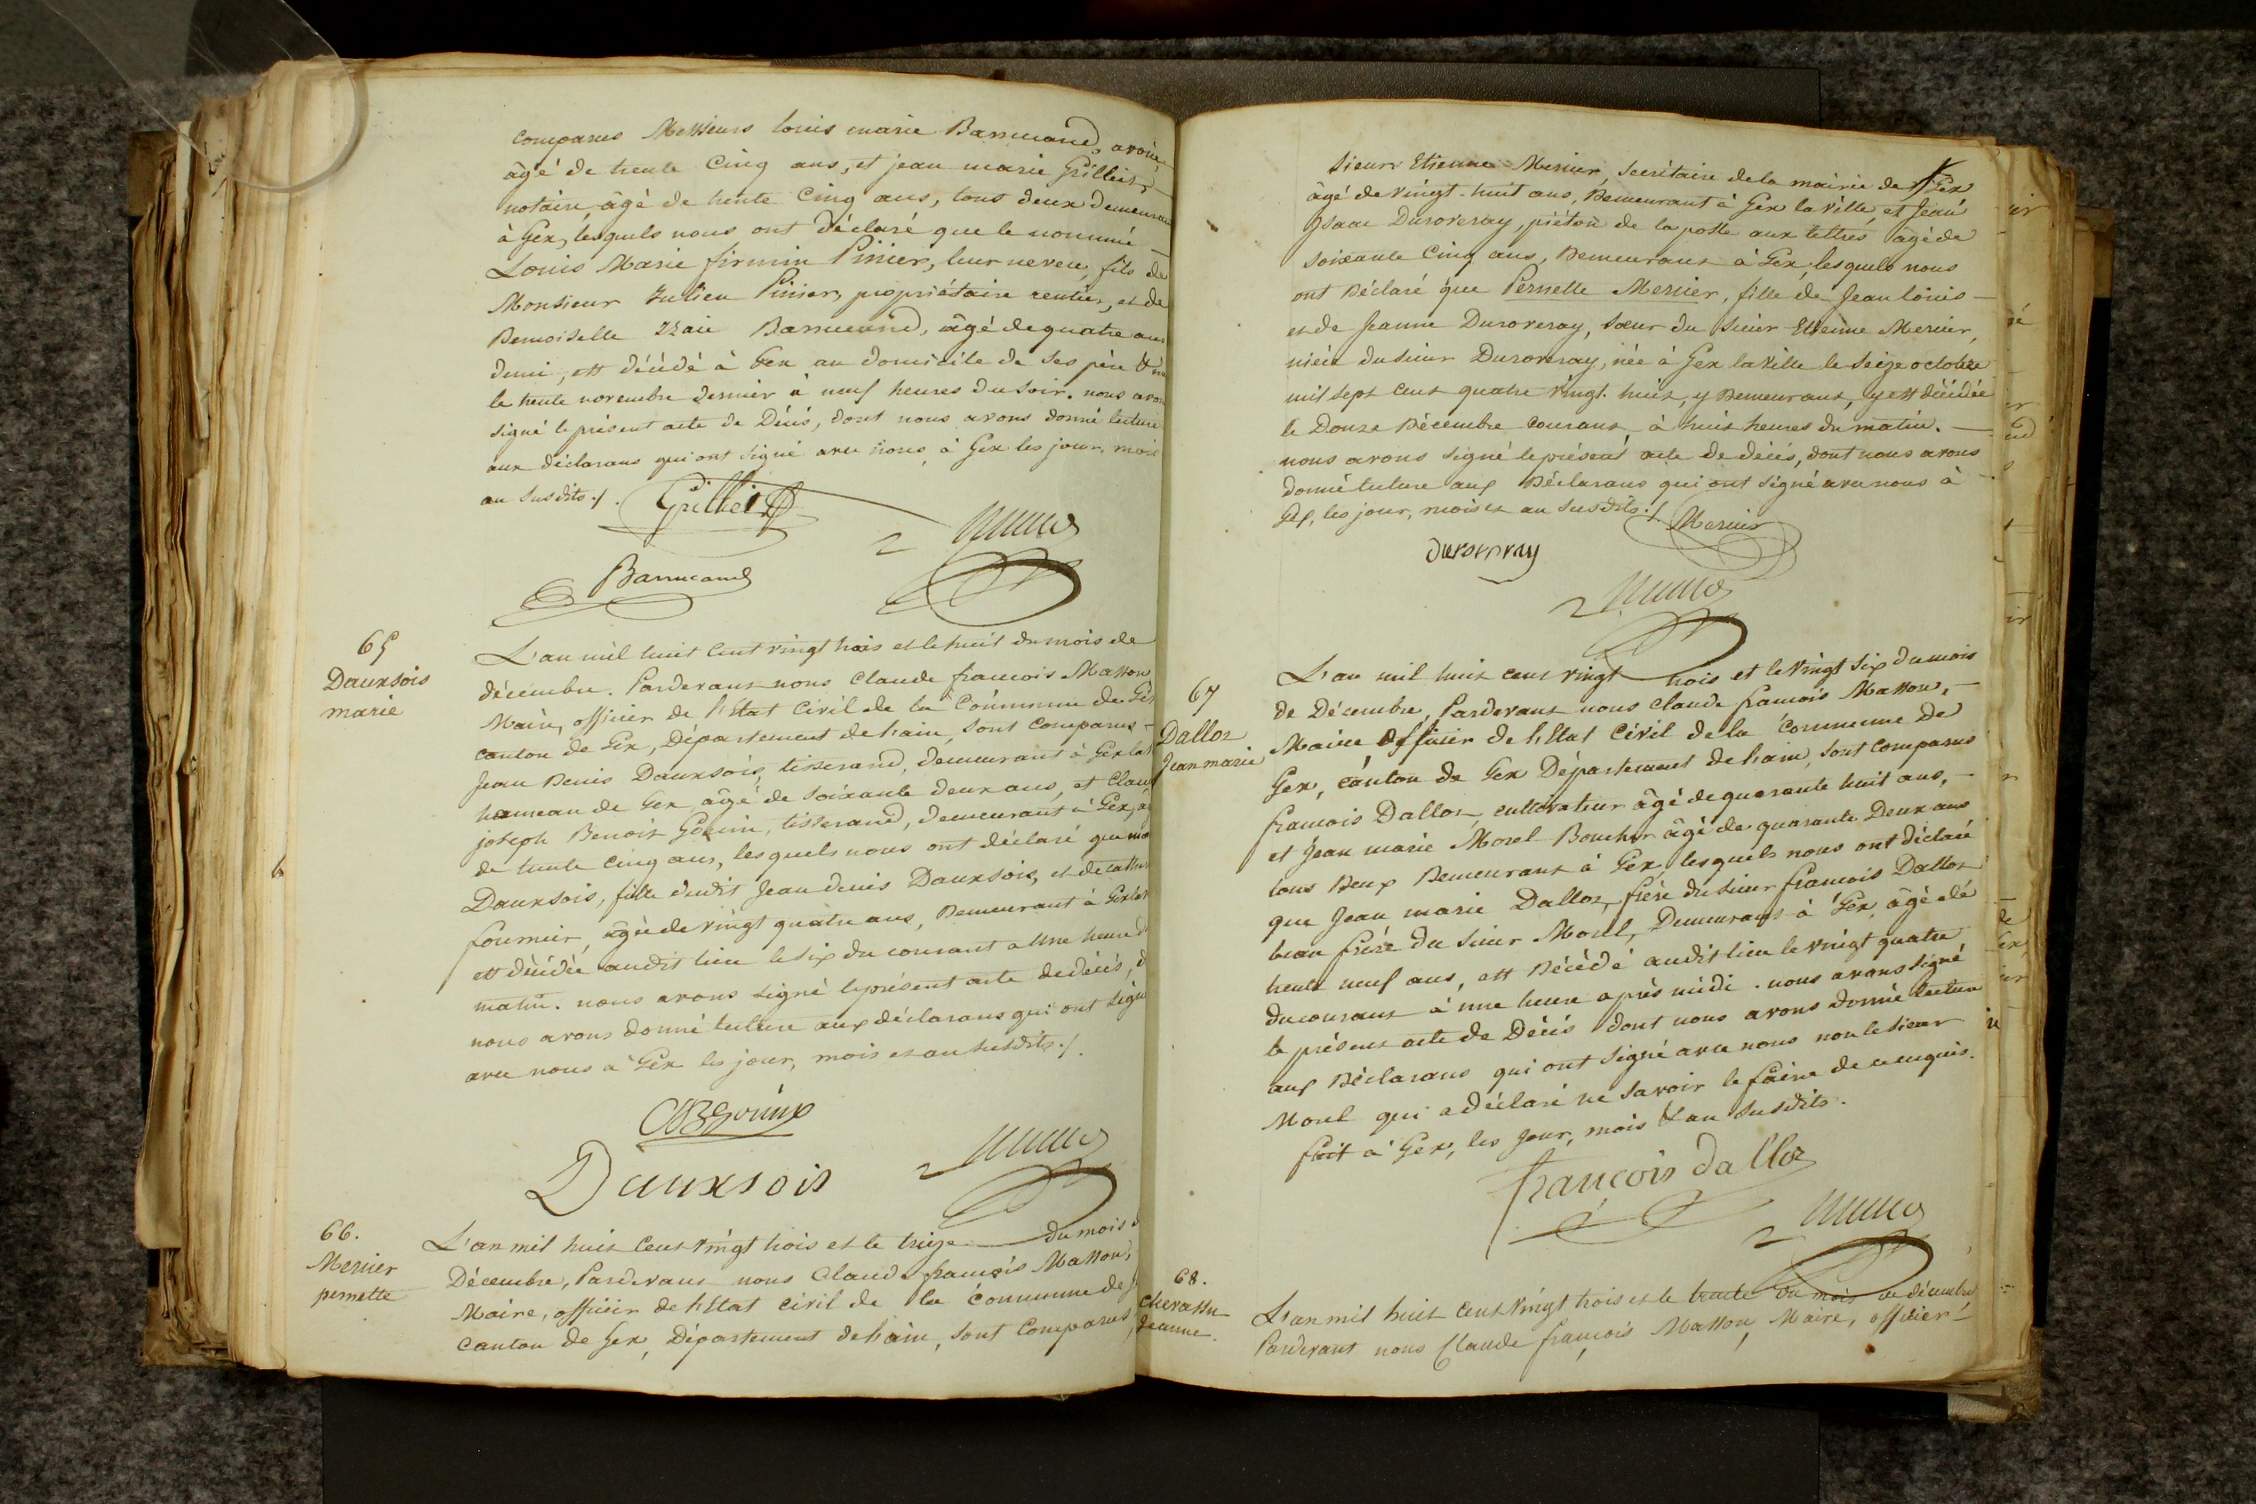 comparus Messieurs louis marie Barrucand, avoué
âgé de trente Cinq ans, et jean marie Grilliet,
notaire, âgé de trente Cinq ans, tous deux demeurant
à Gex, lesquels nous ont déclaré que le nommé
Louis Marie firmin Pinier, leur neveu, fils de
Monsieur Julien Pinier, propriétaire rentier, et de
Demoiselle Barrucand, âgé de quatre ans
demi, est décédé à Gex au domicile de ses père &
le trente novembre dernier à neuf heures du soir. nous avons
signé le présent acte de Décès, dont nous avons donné lecture
aux déclarans qui ont signé avec nous, à Gex les jour, mois
an susdits ./.
Grilliet
Barrucand
65
Dauxsois
marie
L'an mil huit Cent vingt trois et le huit du mois de
décembre. Pardevant nous Claude françois Masson,
Maire, officier de l'Etat Civil de la Commune de Gex
canton de Gex, Département de l'ain, sont comparus -
Jean Denis Dauxsois, tisserand, demeurant à Gex la
hameau de Gex âgé de soixante deux ans, et Clau
joseph Benoit Gouin, tisserand, demeurant à Gex,
de trente cinq ans, lesquels nous ont déclaré que
Dauxsois, fille dudit Jean denis Dauxsois, et de
fournier, âgée de vingt quatre ans, Demeurant à Gex
est décédée audit lieu le six du courant a Une heure
matin. nous avons signé le présent acte de décès, d
nous avons donné lecture aux déclarans qui ont signé
avec nous à Gex les jour, mois et an susdits ./.
Dauxsois
66.
Mernier
pernette
L'an mil huit Cent vingt trois et le treize du mois
Décembre, Pardevant nous Claude françois Masson,
Maire, officier de l'Etat civil de la Commune de
canton de Gex, Département de l'ain, sont Comparus
sieurs Etienne Mernier, secrétaire de la mairie de Gex
âgé de vingt-huit ans, Demeurant à Gex la Ville, et Jean
Isaac Duroveray, piéton de la poste aux lettres âgé de
soixante Cinq ans, Demeurant à Gex, lesquels nous
ont Déclaré que Pernette Mernier, fille de Jean louis -
et de Jeanne Duroveray, sœur du sieur Etienne Mernier,
nièce du sieur Duroveray, née à Gex la Ville le seize octobre
mil sept cent quatre vingt. huit, y Demeurant, y est décédée
le Douze Décembre courant, à huit heures du matin. -
nous avons signé le présent acte de décès, dont nous avons
donné lecture aux Déclarans qui ont signé avec nous à
Gex, les jour, mois et an susdits ./.
Mernier
duroveray
67
Dalloz
Jean marie
L'an mil huit cent vingt trois et le vingt six du mois
de Décembre, Pardevant nous Claude françois Masson, -
Maire officier de l'Etat Civil de la Commune De
Gex, canton de Gex Département de l'ain, sont comparus
françois Dalloz, cultivateur âgé de quarante huit ans, -
et Jean marie Morel Boucher âgé de quarante Deux ans
tous Deux Demeurant à Gex, lesquels nous ont déclaré
que Jean marie Dalloz, frère du sieur françois Dalloz
beau frère du sieur Morel, Demeurant à Gex, âgé de
trente neuf ans, est Décédé audit lieu le vingt quatre
du courant à une heure après midi. nous avons signé
le présent acte de Décès dont nous avons donné lecture
aux Déclarans qui ont signé avec nous non le sieur
Morel qui a déclaré ne savoir le faire de ce enquis.
fait à Gex, les jour, mois & an susdits.
françois dalloz
68.
Chevassu
Jeanne.
L'an mil huit cent vingt trois et le trente du mois de décembre
Pardevant nous Claude françois Masson, Maire, officier